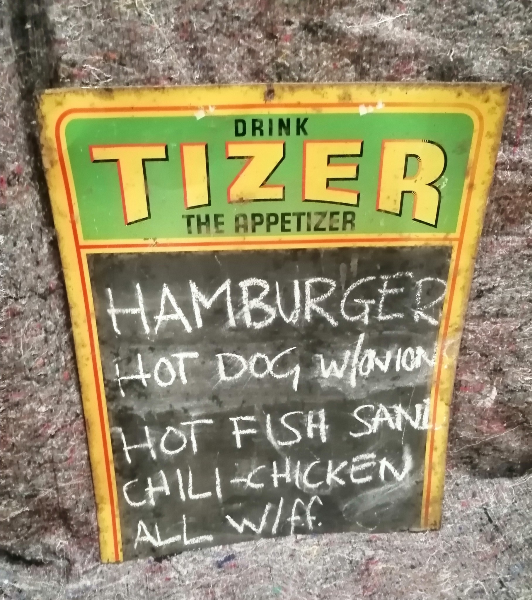 DRINK
TIZER
THE APPETIZER
HAMBURGER
HOT DOG W/ONIONS
HOT FISH SAND
CHILI-CHICKEN
ALL W/ff.